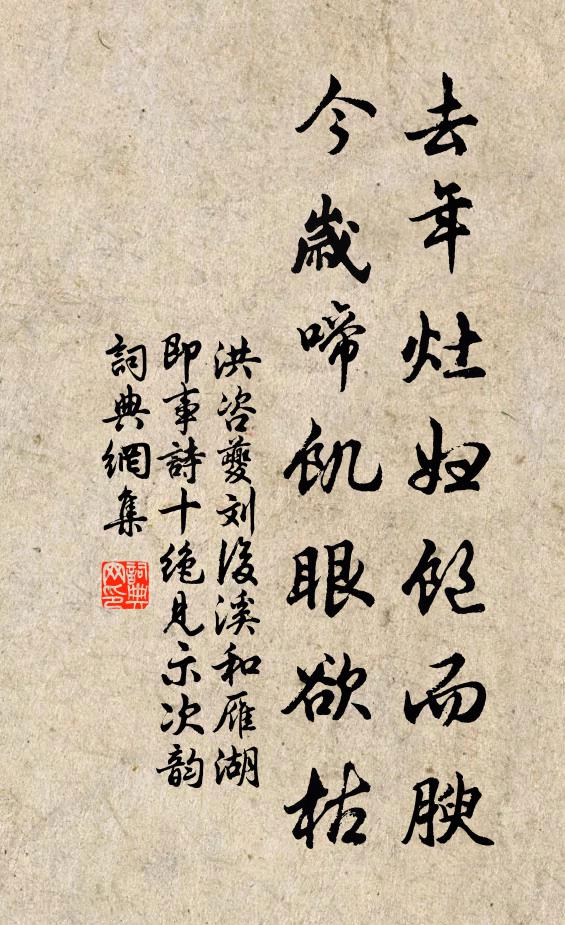 去年灶妇饱而腴
今歲啼飢眼欲枯
洪咨夔刘後溪和雁湖
即事詩十绝見示次韵
詞典網集
詞典网印